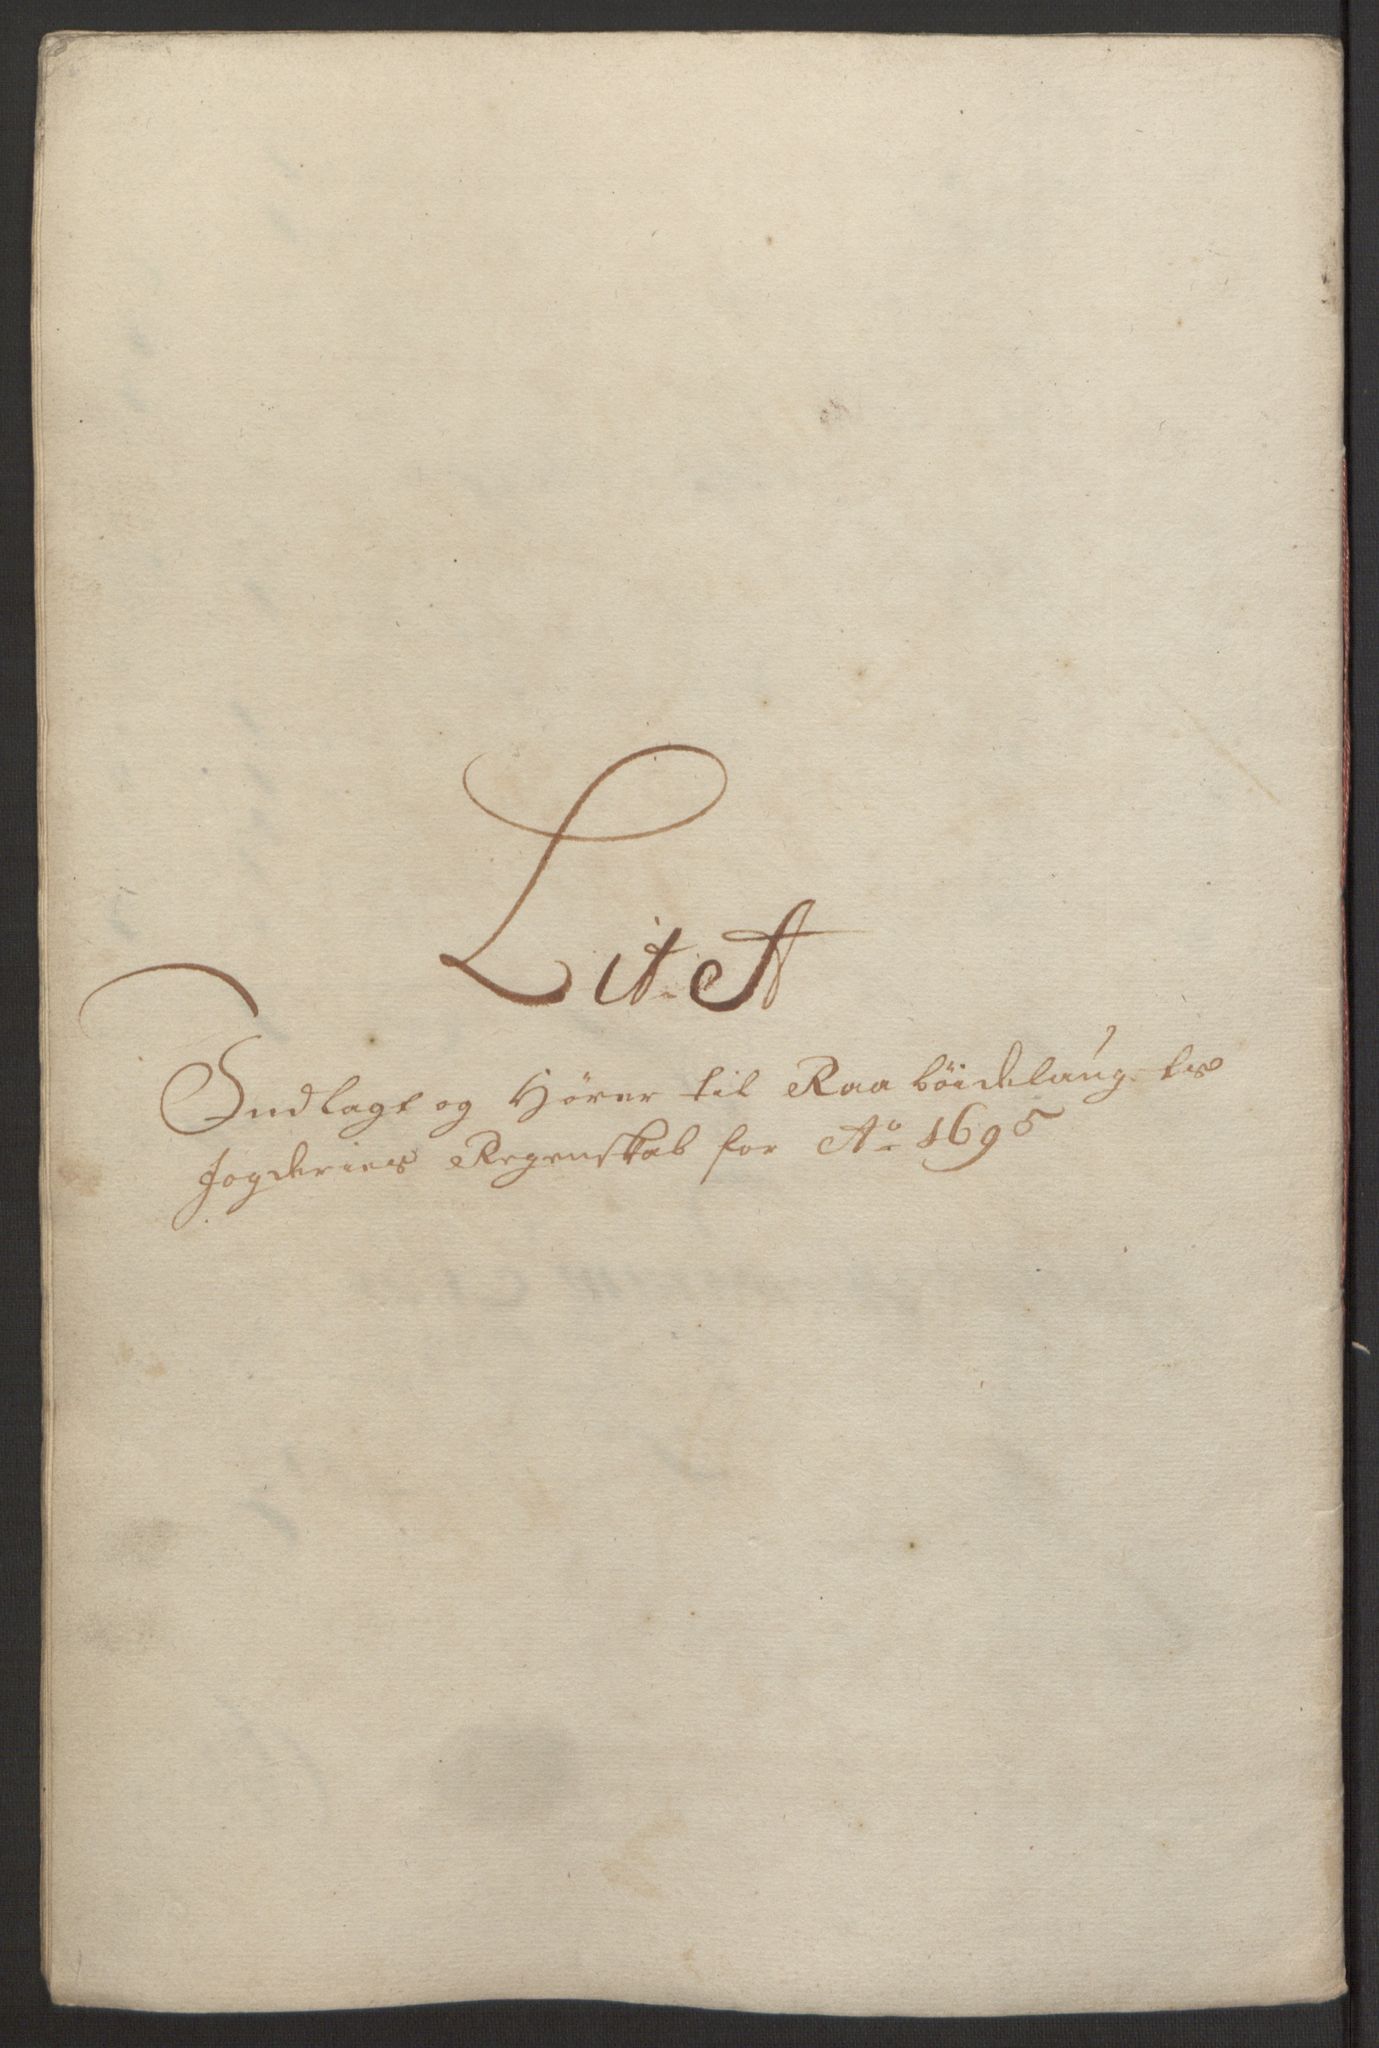 Lit A
Indlagt og Hörer til Raabøidelaugets
Fogderies Regenskab for Ao 1695